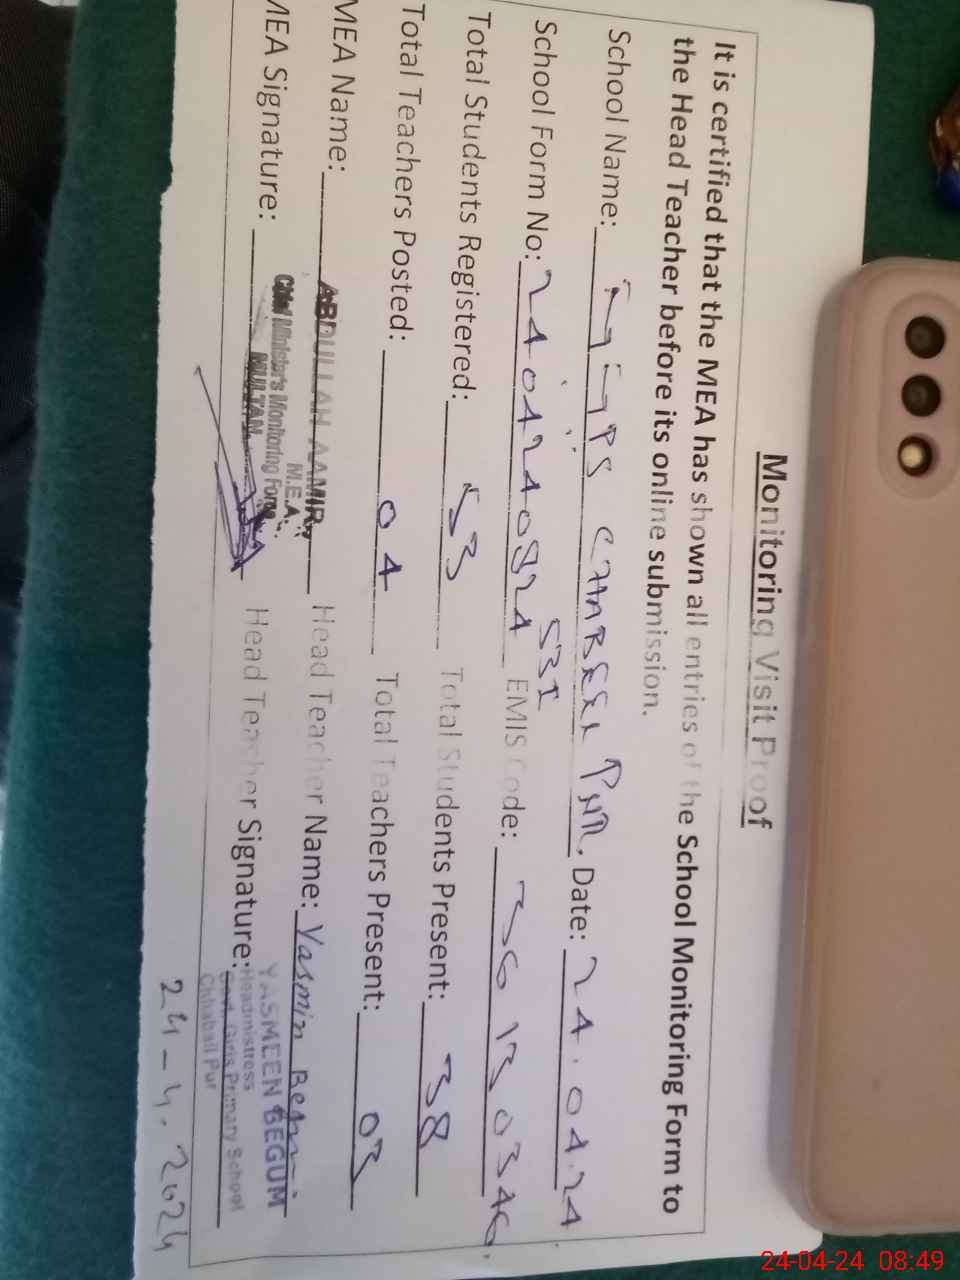 Monitoring Visit Proof
It is certified that the MEA has shown all entries of the School Monitoring Form to
the Head Teacher before its online submission.
School Name: PS PNR. Date: 24.04.24
School Form No: 2404240824 531 EMIS Code:
Total Students Registered: 53 Total Students Present: 38
Total Teachers Posted: 04 Total Teachers Present: 03
MEA Name: ABDULLAH AAMIR Head Teacher Name: Yasmin
M.E.A.
MEA Signature: Chief Minister's Monitoring Force Head Teacher Signature: YASMEEN BEGUM
MULTAN. Headmistress
Govt. Girls Primary School
Chhaball Pur
24-4.2024
24-04-24 08:49